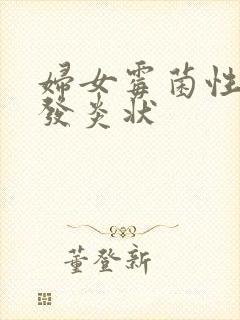 婦女霉菌性
發炎狀
董登新